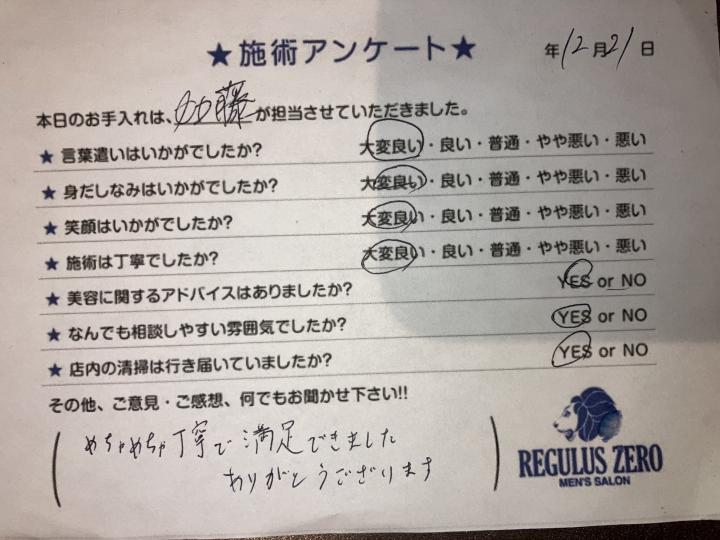 ★施術アンケート★
年12月21日
本日のお手入れは、加藤が担当させていただきました。
★ 言葉遣いはいかがでしたか? 大変良い・良い・普通・やや悪い・悪い
★ 身だしなみはいかがでしたか? 大変良い・良い・普通・やや悪い・悪い
★ 笑顔はいかがでしたか? 大変良い・良い・普通・やや悪い・悪い
★ 施術は丁寧でしたか? 大変良い・良い・普通・やや悪い・悪い
★ 美容に関するアドバイスはありましたか? YES or NO
★ なんでも相談しやすい雰囲気でしたか? YES or NO
★ 店内の清掃は行き届いていましたか? YES or NO
その他、ご意見・ご感想、何でもお聞かせ下さい!!
めちゃめちゃ丁寧で満足できました
ありがとうございます
REGULUS ZERO
MEN'S SALON